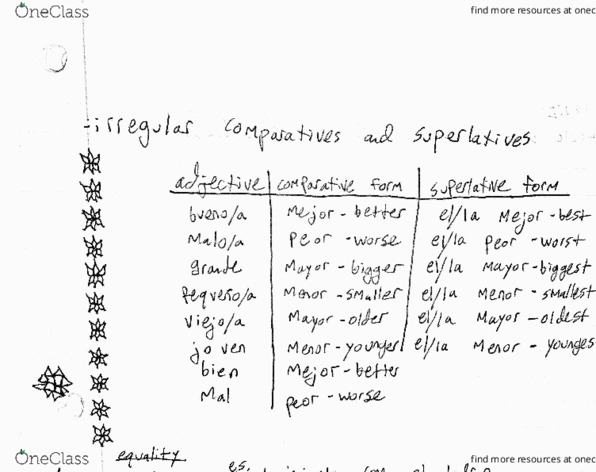 OneClass
find more resources at onec
-irregular comparatives and superlatives
adjective comparative form superlative form
bueno/a Mejor - better el/la Mejor - best
Malo/a Peor - worse el/la Peor - worst
grande Mayor - bigger el/la Mayor - biggest
Pequeño/a Menor - smaller el/la Menor - smallest
Viejo/a Mayor - older el/la Mayor - oldest
joven Menor - younger el/la Menor - younges
bien Mejor - better
Mal peor - worse
OneClass
find more resources at onec
equality
es.